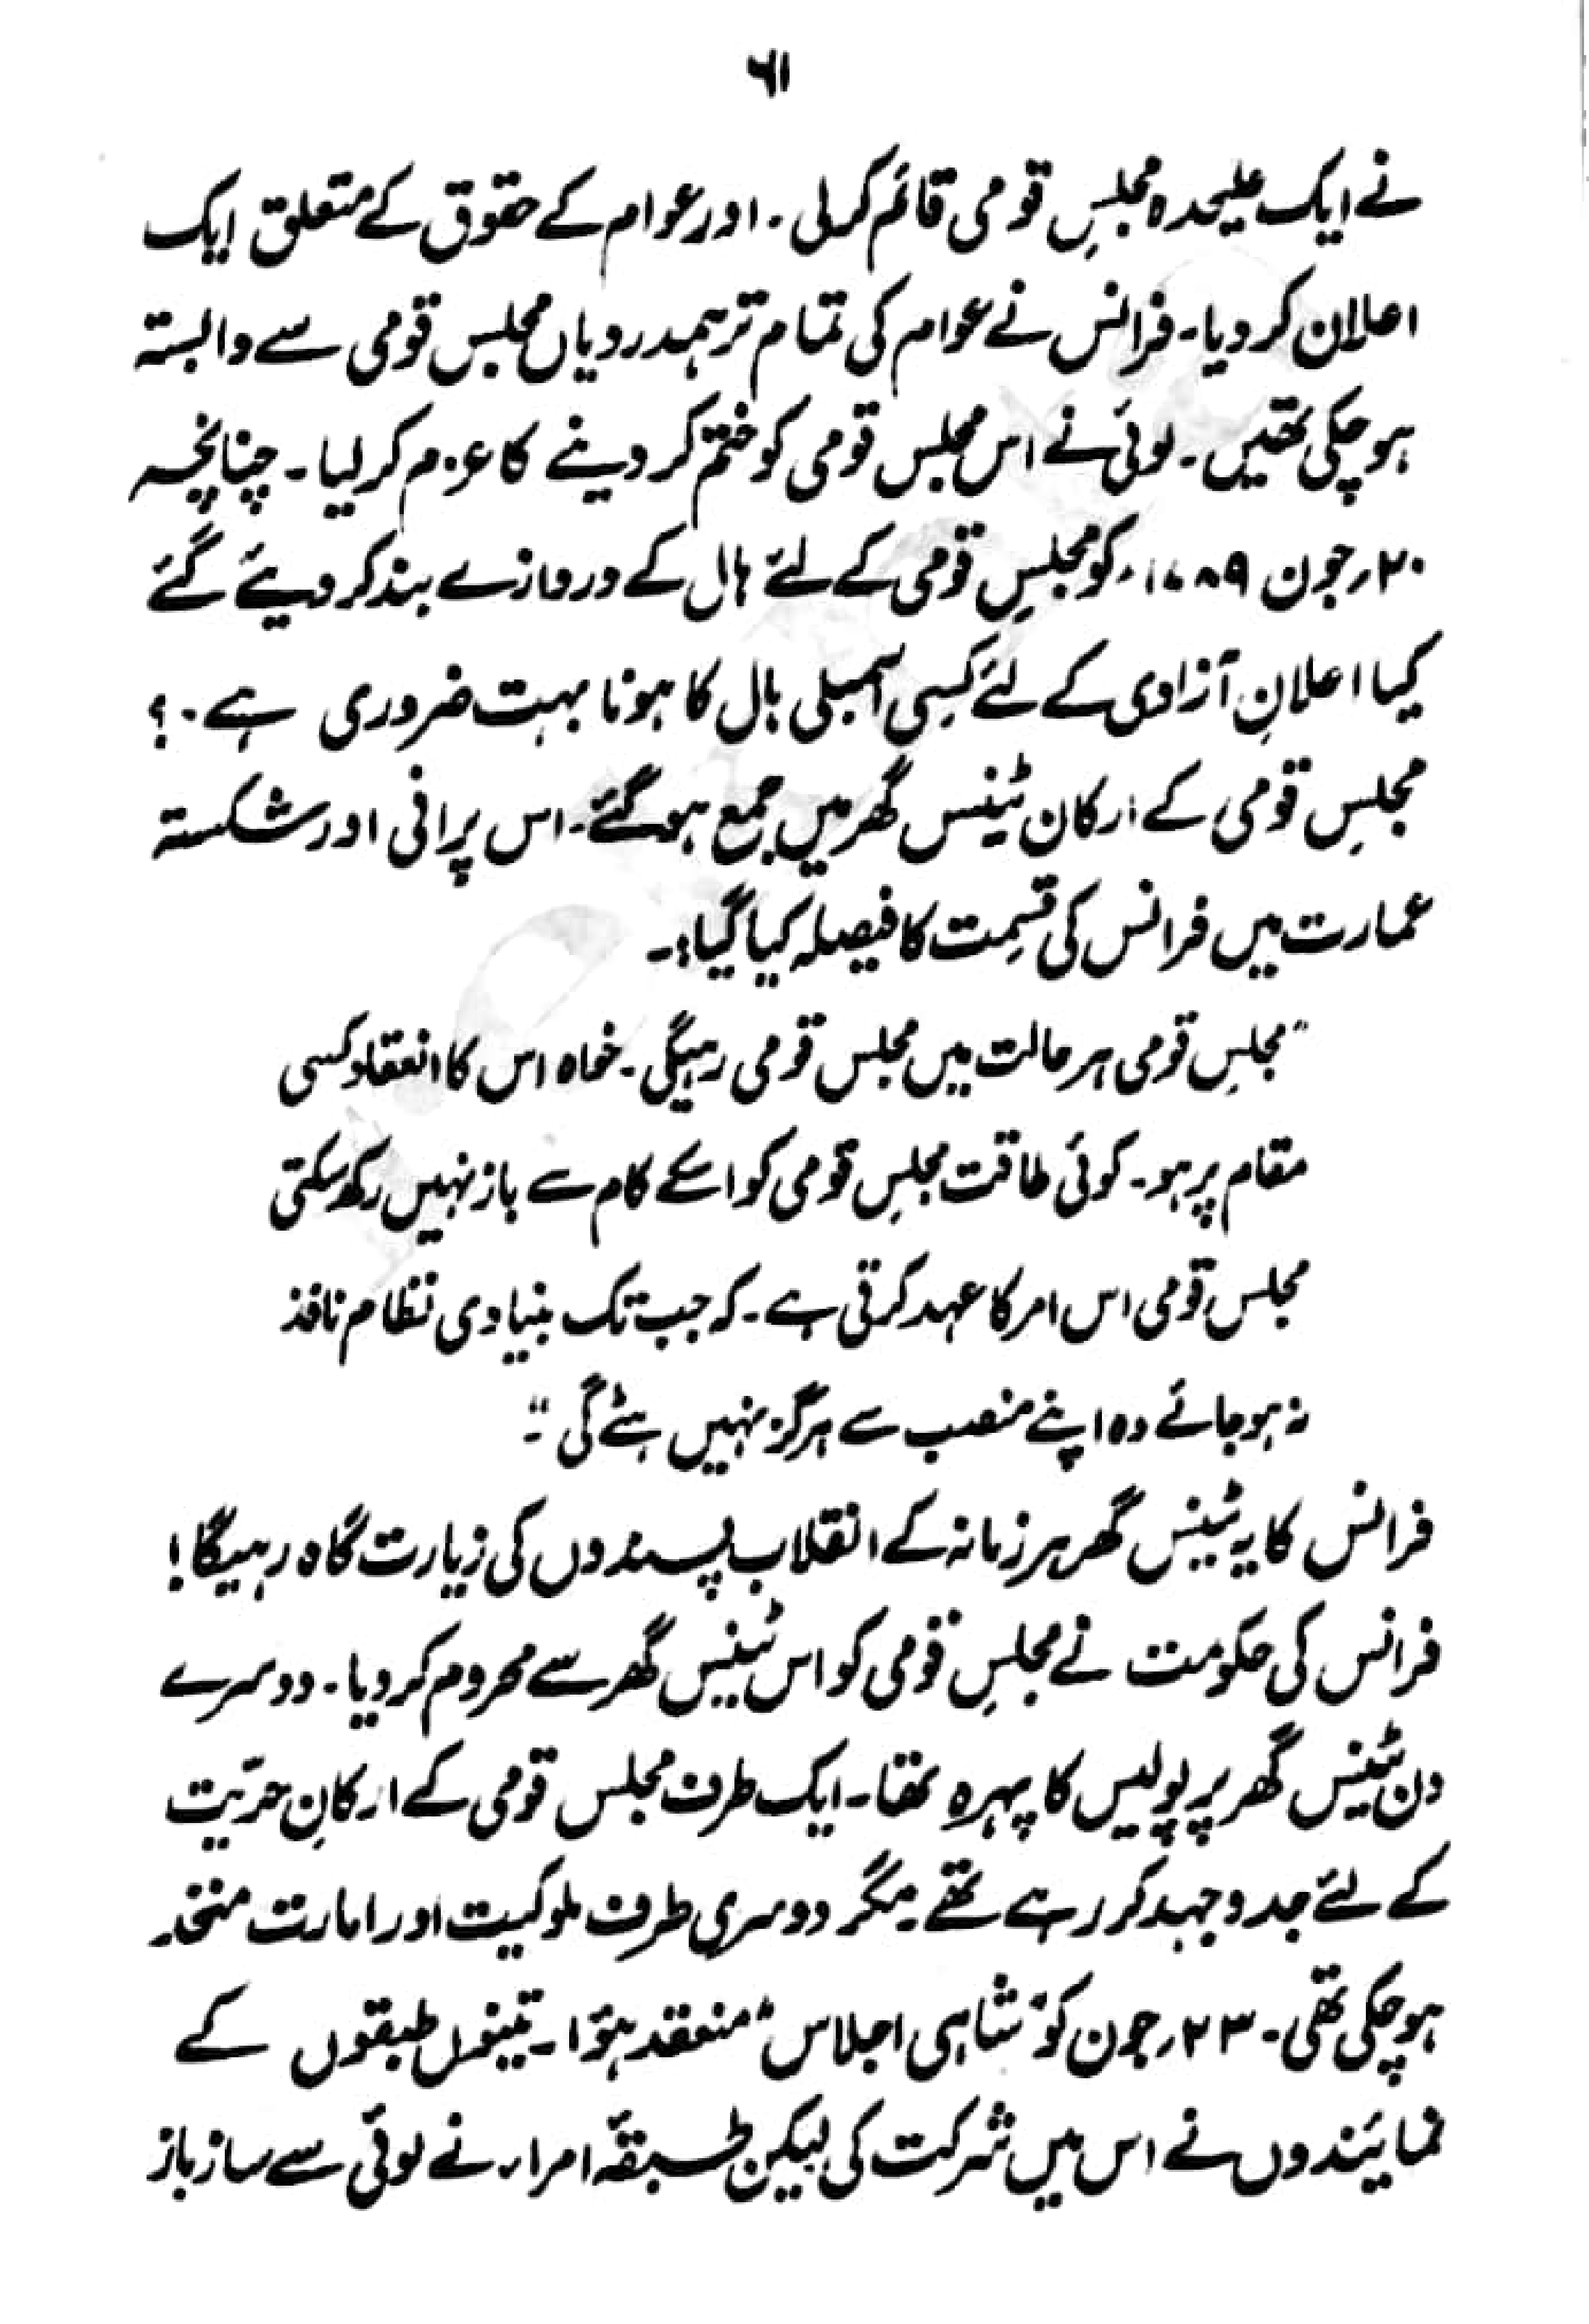 ۶۱
نے ایک علیحدہ مجلسِ قومی قائم کرلی۔ اور عوام کے حقوق کے متعلق ایک
اعلان کر دیا۔ فرانس نے عوام کی تمام تر ہمدردیاں مجلس قومی سے وابستہ
ہو چکی تھیں۔ لوئی نے اس مجلس قومی کو ختم کر دینے کا عزم کر لیا۔ چنانچہ
۲۰؍جون ۱۷۸۹ء کو مجلسِ قومی کے لئے ہال کے دروازے بند کر دیئے گئے
کیا اعلانِ آزادی کے لئے کسی اسمبلی ہال کا ہونا بہت ضروری ہے۔؟
مجلسِ قومی کے ارکان ٹینس گھر میں جمع ہو گئے۔ اس پرانی اور شکستہ
عمارت میں فرانس کی قسمت کا فیصلہ کیا گیا:۔
"مجلسِ قومی ہر حالت میں مجلس قومی رہیگی۔ خواہ اس کا انعقاد کسی
مقام پر ہو۔ کوئی طاقت مجلسِ قومی کو اسکے کام سے باز نہیں رکھ سکتی
مجلس قومی اس امر کا عہد کرتی ہے۔ کہ جب تک بنیادی نظام نافذ
نہ ہو جائے وہ اپنے منصب سے ہرگز نہیں ہٹے گی"۔
فرانس کا یہ ٹینس گھر ہر زمانہ کے انقلاب پسندوں کی زیارت گاہ رہیگا!
فرانس کی حکومت نے مجلسِ قومی کو اس ٹینس گھر سے محروم کر دیا۔ دوسرے
دن ٹینس گھر پر پولیس کا پہرہ تھا۔ ایک طرف مجلس قومی کے ارکانِ حریّت
کے لئے جدوجہد کر رہے تھے۔ مگر دوسری طرف ملوکیت اور امارت متحد
ہو چکی تھی۔ ۲۳؍جون کو "شاہی اجلاس" منعقد ہؤا۔ تینوں طبقوں کے
نمائیندوں نے اس میں شرکت کی لیکن طبقۂ امراء نے لوئی سے ساز باز